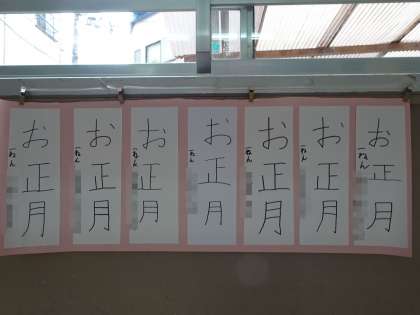 お正月
一ねん
お正月
一ねん
お正月
一ねん
お正月
一ねん
お正月
一ねん
お正月
一ねん
お正月
一ねん